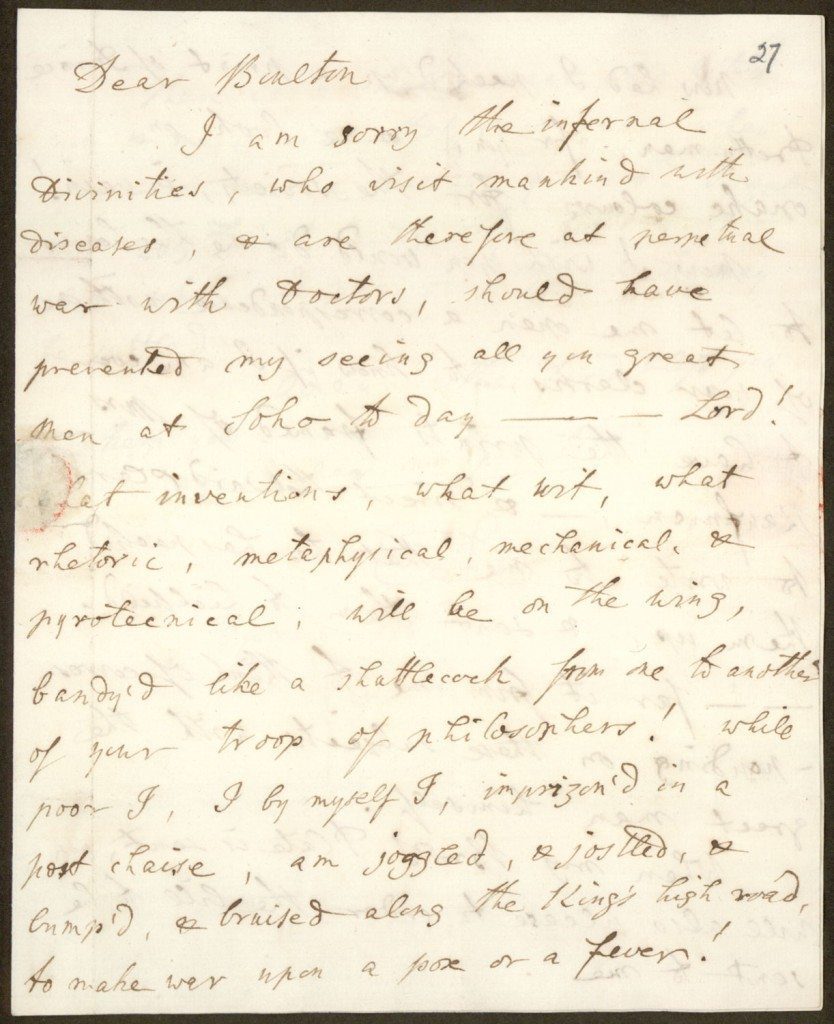 27
Dear Boulton
I am sorry the infernal
Divinities, who visit mankind with
diseases, & are therefore at perpetual
war with Doctors, should have
prevented my seeing all you great
men at Soho to day — — Lord!
hat inventions, what wit, what
rhetoric, metaphysical, mechanical, &
pyrotecnical, will be on the wing,
bandy'd like a shuttlecock from one to another
of your troop of philosophers! while
poor I, I by myself I, imprizon'd in a
post chaise, am joggled, & jostled, &
bump'd, & bruised along the King's high road,
to make war upon a pox or a fever!